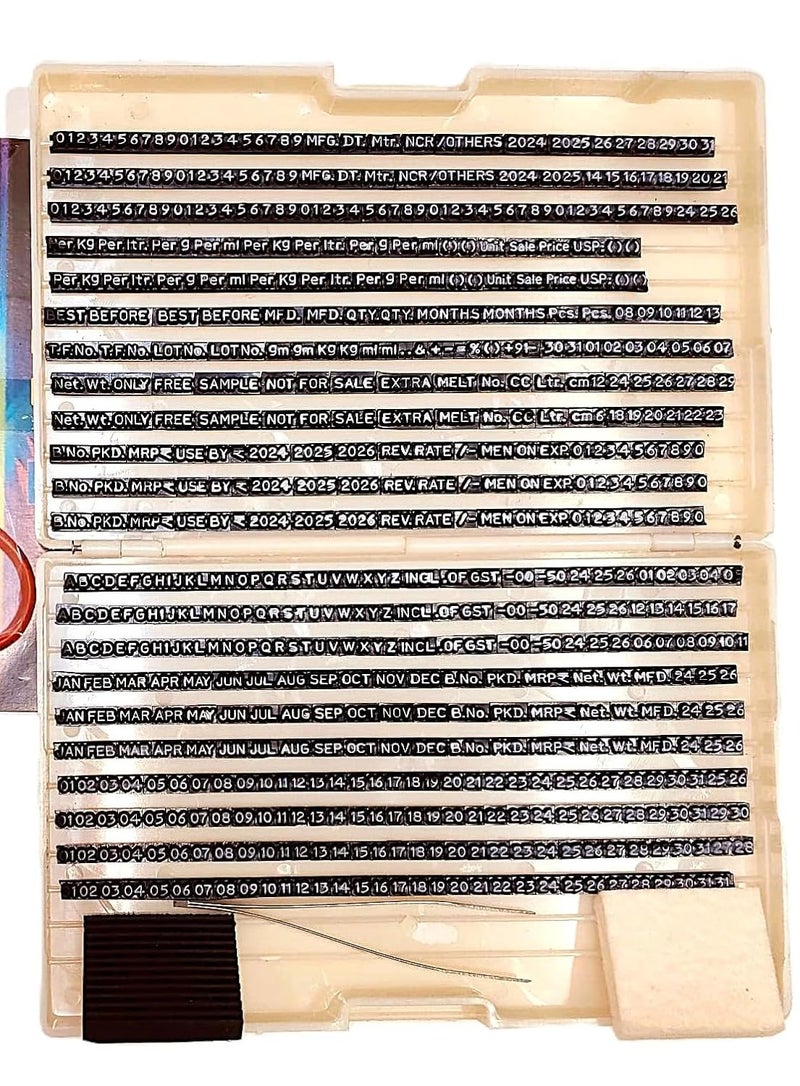 0 1 2 3 4 5 6 7 8 9 0 1 2 3 4 5 6 7 8 9 MFG. DT. Mtr. NCR/OTHERS 2024 2025 26 27 28 29 30 31
0 1 2 3 4 5 6 7 8 9 0 1 2 3 4 5 6 7 8 9 MFG. DT. Mtr. NCR/OTHERS 2024 2025 14 15 16 17 18 19 20 21
0 1 2 3 4 5 6 7 8 9 0 1 2 3 4 5 6 7 8 9 0 1 2 3 4 5 6 7 8 9 0 1 2 3 4 5 6 7 8 9 0 1 2 3 4 5 6 7 8 9 24 25 26
Per Kg Per ltr. Per g Per ml Per Kg Per ltr. Per g Per ml ( ) ( ) Unit Sale Price USP: ( ) ( )
Per Kg Per ltr. Per g Per ml Per Kg Per ltr. Per g Per ml ( ) ( ) Unit Sale Price USP: ( ) ( )
BEST BEFORE BEST BEFORE MFD. MFD. QTY. QTY. MONTHS MONTHS Pcs. Pcs. 08 09 10 11 12 13
T.F.No. T.F.No. LOT No. LOT No. gm gm Kg Kg ml ml . . & + - = % ( ) +91- 30 31 01 02 03 04 05 06 07
Net. Wt. ONLY FREE SAMPLE NOT FOR SALE EXTRA MELT No. CC Ltr. cm 12 24 25 26 27 28 29
Net. Wt. ONLY FREE SAMPLE NOT FOR SALE EXTRA MELT No. CC Ltr. cm 6 18 19 20 21 22 23
B.No. PKD. MRP ₹ USE BY ₹ 2024 2025 2026 REV. RATE /- MEN ON EXP. 0 1 2 3 4 5 6 7 8 9 0
B.No. PKD. MRP ₹ USE BY ₹ 2024 2025 2026 REV. RATE /- MEN ON EXP. 0 1 2 3 4 5 6 7 8 9 0
B.No. PKD. MRP ₹ USE BY ₹ 2024 2025 2026 REV. RATE /- MEN ON EXP. 0 1 2 3 4 5 6 7 8 9 0
A B C D E F G H I J K L M N O P Q R S T U V W X Y Z INCL. OF GST -00 -50 24 25 26 01 02 03 04
A B C D E F G H I J K L M N O P Q R S T U V W X Y Z INCL. OF GST -00 -50 24 25 26 12 13 14 15 16 17
A B C D E F G H I J K L M N O P Q R S T U V W X Y Z INCL. OF GST -00 -50 24 25 26 06 07 08 09 10 11
JAN FEB MAR APR MAY JUN JUL AUG SEP OCT NOV DEC B.No. PKD. MRP ₹ Net. Wt. MFD. 24 25 26
JAN FEB MAR APR MAY JUN JUL AUG SEP OCT NOV DEC B.No. PKD. MRP ₹ Net. Wt. MFD. 24 25 26
JAN FEB MAR APR MAY JUN JUL AUG SEP OCT NOV DEC B.No. PKD. MRP ₹ Net. Wt. MFD. 24 25 26
01 02 03 04 05 06 07 08 09 10 11 12 13 14 15 16 17 18 19 20 21 22 23 24 25 26 27 28 29 30 31 25 26
01 02 03 04 05 06 07 08 09 10 11 12 13 14 15 16 17 18 19 20 21 22 23 24 25 26 27 28 29 30 31 29 30
01 02 03 04 05 06 07 08 09 10 11 12 13 14 15 16 17 18 19 20 21 22 23 24 25 26 27 28 29 30 31 27 28
1 02 03 04 05 06 07 08 09 10 11 12 13 14 15 16 17 18 19 20 21 22 23 24 25 26 27 28 29 30 31 31